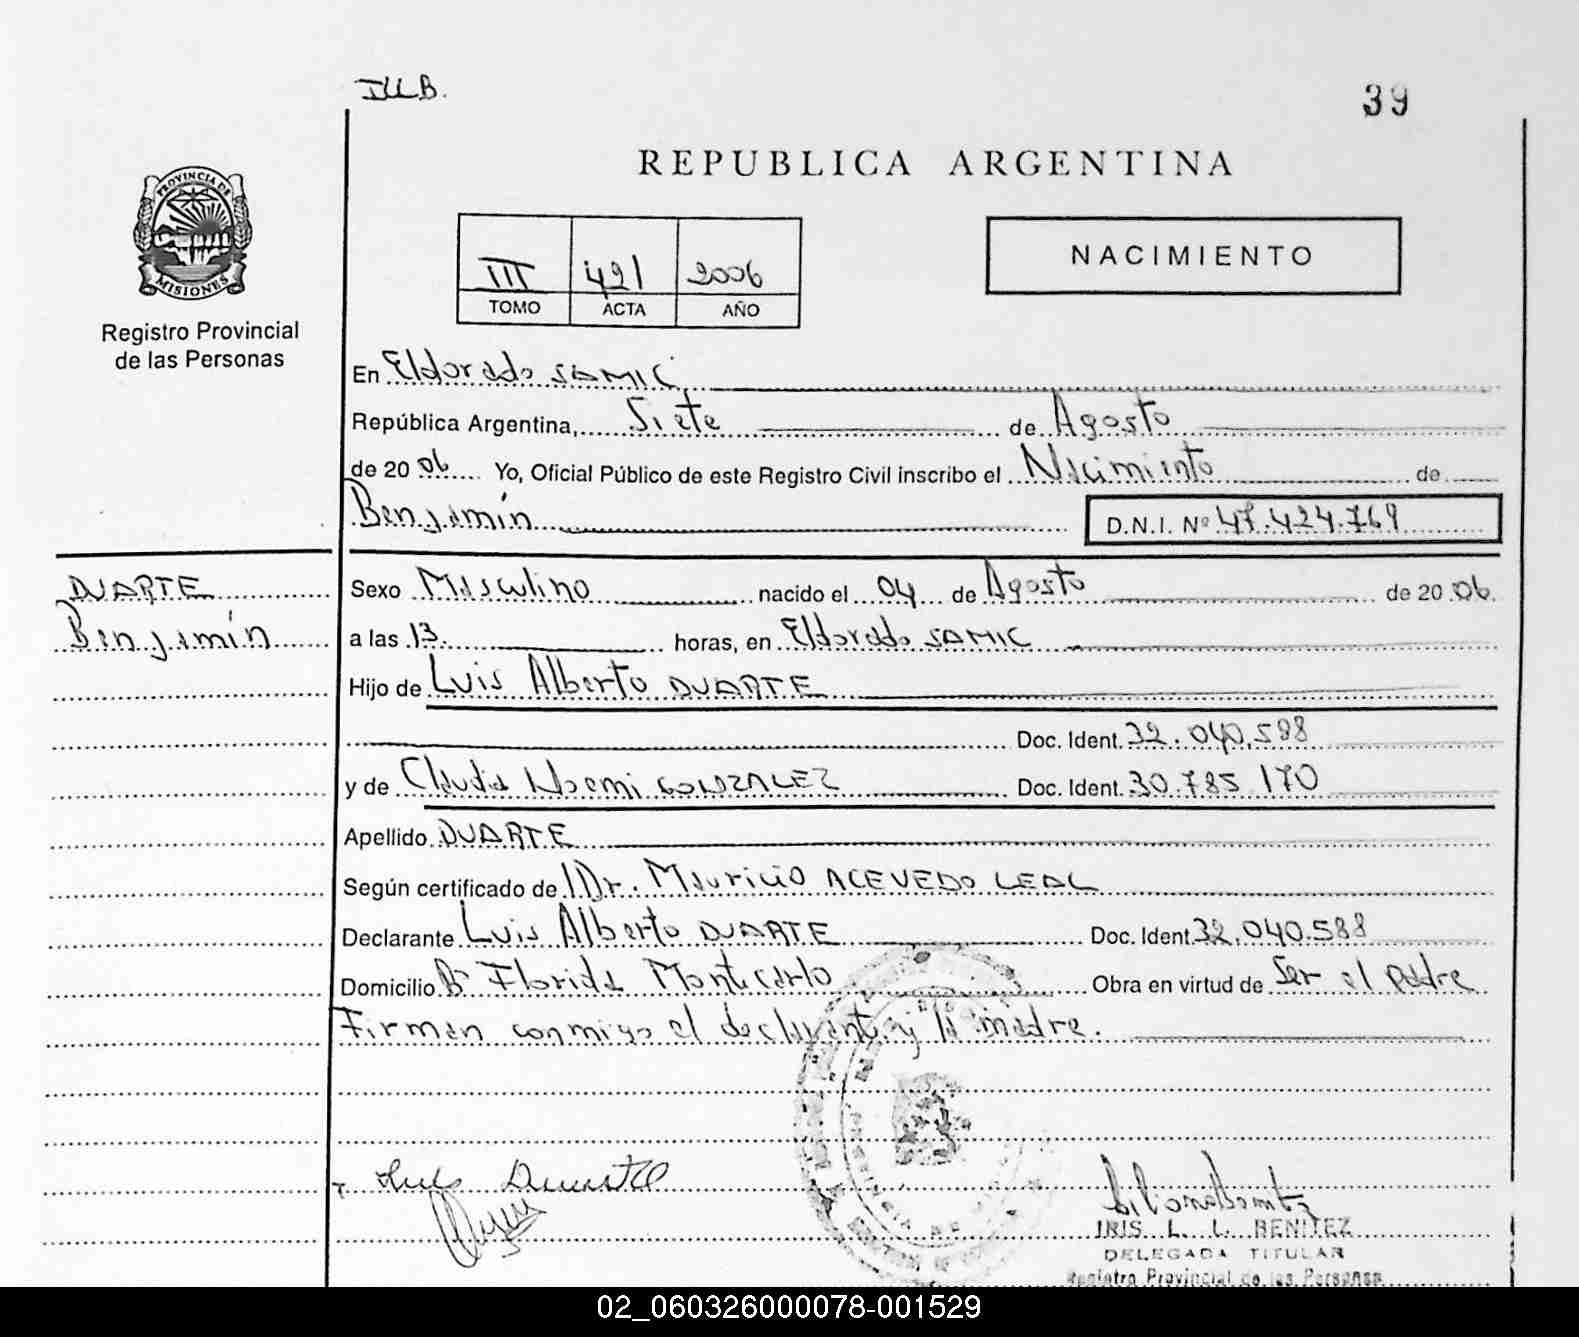 39
REPUBLICA ARGENTINA
PROVINCIA DE
MISIONES
Registro Provincial
de las Personas
III 421 2006
TOMO ACTA AÑO
NACIMIENTO
En Eldorado SAMIC
República Argentina, Siete de Agosto
de 20 06 Yo, Oficial Público de este Registro Civil inscribo el Nacimiento de
Benjamín D.N.I. Nº 47.424.769
DUARTE
Benjamín
Sexo Masculino nacido el 04 de Agosto de 20 06
a las 13 horas, en Eldorado SAMIC
Hijo de Luis Alberto DUARTE
Doc. Ident. 32.040.588
y de Claudia Noemi GONZALEZ Doc. Ident. 30.785.170
Apellido DUARTE
Según certificado de Dr. Mauricio ACEVEDO LEAL
Declarante Luis Alberto DUARTE Doc. Ident. 32.040.588
Domicilio Bº Florida Montecarlo Obra en virtud de Ser el padre
Firman conmigo el declarante y la madre.
Luis Duarte
IRIS L. L. BENITEZ
DELEGADA TITULAR
Registro Provincial de las Personas
02_060326000078-001529